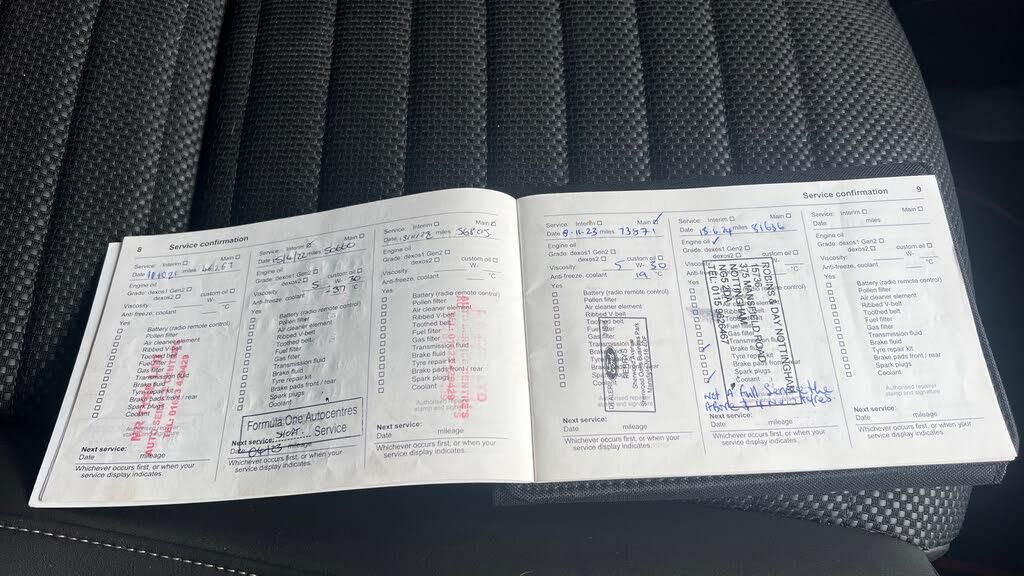 8 Service confirmation
Service: Interim Main
Date miles
Engine oil
Grade: dexos1 Gen2
dexos2 custom oil
Viscosity: W- °C
Anti-freeze, coolant
Yes
Battery (radio remote control)
Pollen filter
Air cleaner element
Ribbed V-belt
Toothed belt
Fuel filter
Gas filter
Transmission fluid
Brake fluid
Tyre repair kit
Brake pads front / rear
Spark plugs
Coolant
Next service:
Date mileage
Whichever occurs first, or when your
service display indicates.
Service: Interim Main
Date 15/6/22 miles
Engine oil
Grade: dexos1 Gen2
dexos2 custom oil
Viscosity: 5 W- 30
Anti-freeze, coolant - 37 °C
Battery (radio remote control)
Pollen filter
Air cleaner element
Ribbed V-belt
Toothed belt
Fuel filter
Gas filter
Transmission fluid
Brake fluid
Tyre repair kit
Brake pads front / rear
Spark plugs
Coolant
Formula One Autocentres
Service
Next service:
Date mileage
Whichever occurs first, or when your
service display indicates.
Service: Interim Main
Date miles 56805
Engine oil
Grade: dexos1 Gen2
dexos2 custom oil
Viscosity: W-
Anti-freeze, coolant °C
Battery (radio remote control)
Pollen filter
Air cleaner element
Ribbed V-belt
Toothed belt
Fuel filter
Gas filter
Transmission fluid
Brake fluid
Tyre repair kit
Brake pads front / rear
Spark plugs
Coolant
Next service:
Date mileage
Whichever occurs first, or when your
service display indicates.
Service confirmation 9
Service: Interim Main
Date 8-11-23 miles 73871
Engine oil
Grade: dexos1 Gen2
dexos2 custom oil
Viscosity: 5 W- 30
Anti-freeze, coolant 19 °C
Yes
Battery (radio remote control)
Pollen filter
Air cleaner element
Ribbed V-belt
Toothed belt
Fuel filter
Gas filter
Transmission fluid
Brake fluid
Tyre repair kit
Brake pads front / rear
Spark plugs
Coolant
Next service:
Date mileage
Whichever occurs first, or when your
service display indicates.
Service: Interim Main
Date miles 81636
Engine oil
Grade: dexos1 Gen2
dexos2 custom oil
Viscosity: W-
Anti-freeze, coolant °C
Battery (radio remote control)
Pollen filter
Air cleaner element
Ribbed V-belt
Toothed belt
Fuel filter
Gas filter
Transmission fluid
Brake fluid
Tyre repair kit
Brake pads front / rear
Spark plugs
Coolant
ROBINS & DAY NOTTINGHAM
375 MANSFIELD ROAD
NOTTINGHAM
Not A full Service the
Next service:
Date mileage
Whichever occurs first, or when your
service display indicates.
Service: Interim Main
Date miles
Engine oil
Grade: dexos1 Gen2
dexos2 custom oil
Viscosity: W-
Anti-freeze, coolant °C
Yes
Battery (radio remote control)
Pollen filter
Air cleaner element
Ribbed V-belt
Toothed belt
Fuel filter
Gas filter
Transmission fluid
Brake fluid
Tyre repair kit
Brake pads front / rear
Spark plugs
Coolant
Authorised repairer
stamp and signature
Next service:
Date mileage
Whichever occurs first, or when your
service display indicates.